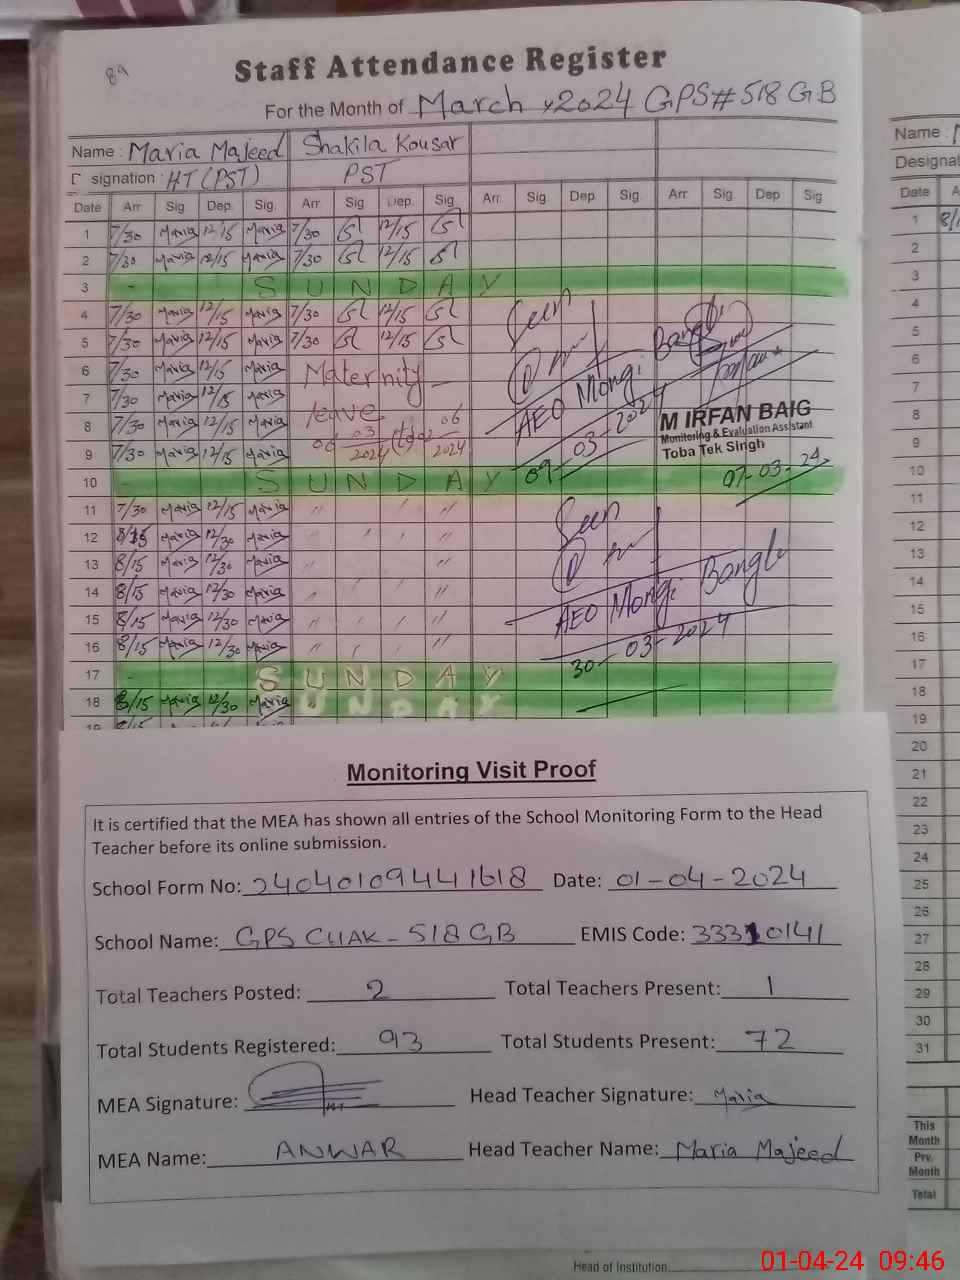 89
Staff Attendance Register
For the Month of March, 2024 GPS#518 GB
Name : Maria Majeed Shakila Kousar
signation : HT (PST) PST
Date Arr Sig. Dep. Sig. Arr. Sig Dep. Sig Arr. Sig. Dep. Sig. Arr. Sig. Dep Sig.
1 7/30 Maria 12/15 Maria 7/30 12/15
2 7/30 Maria 12/15 Maria 7/30 12/15
3 - S U N D A Y
4 7/30 Maria 12/15 Maria 7/30 12/15 Seen
5 7/30 Maria 12/15 Maria 7/30 12/15
6 7/30 Maria 12/15 Maria Maternity
7 7/30 Maria 12/15 Maria leave
8 7/30 Maria 12/15 Maria 06 03/2024 to 06/2024
9 7/30 Maria 12/15 Maria
AEO Mongi Bangla
09-03-2024
M IRFAN BAIG
Monitoring & Evaluation Assistant
Toba Tek Singh
07-03-24
10 - S U N D A Y
11 7/30 Maria 12/15 Maria " "
12 8/15 Maria 12/30 Maria " "
13 8/15 Maria 12/30 Maria " "
14 8/15 Maria 12/30 Maria " "
15 8/15 Maria 12/30 Maria " "
16 8/15 Maria 12/30 Maria " "
Seen
AEO Mongi Bangla
30-03-2024
17 - S U N D A Y
18 8/15 Maria 12/30 Maria S U N D A Y
19
Monitoring Visit Proof
It is certified that the MEA has shown all entries of the School Monitoring Form to the Head
Teacher before its online submission.
School Form No: 24040109441618 Date: 01-04-2024
School Name: GPS CHAK-518 GB EMIS Code: 33310141
Total Teachers Posted: 2 Total Teachers Present: 1
Total Students Registered: 93 Total Students Present: 72
MEA Signature: Head Teacher Signature: Maria
MEA Name: ANWAR Head Teacher Name: Maria Majeed
Head of Institution
01-04-24 09:46
Name :
Designat
Date A
1 8/1
2
3
4
5
6
7
8
9
10
11
12
13
14
15
16
17
18
19
20
21
22
23
24
25
26
27
28
29
30
31
This
Month
Prv.
Month
Total